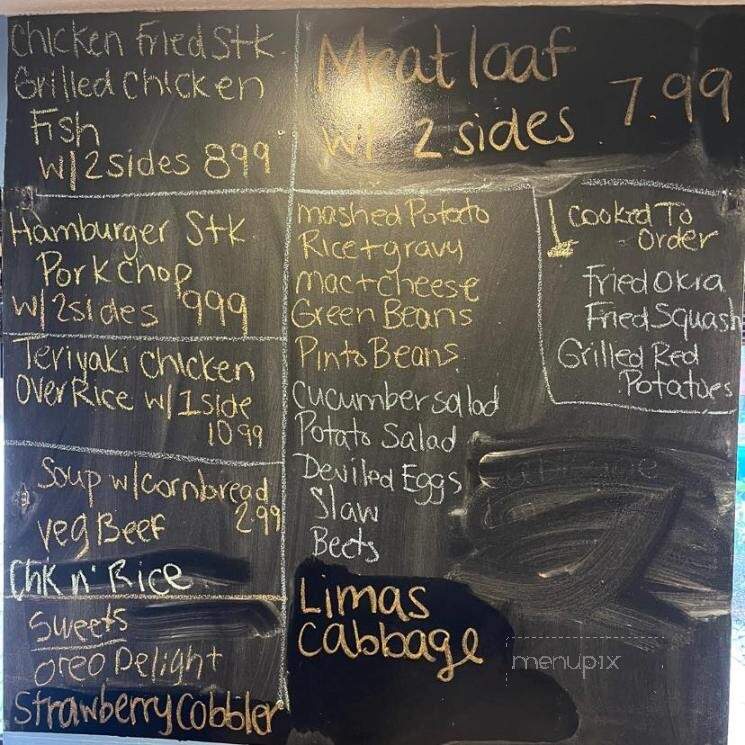 Chicken Fried Stk
Grilled Chicken
Fish
w/ 2 sides 899
Meatloaf
w/ 2 sides 7.99
Hamburger Stk
Pork Chop
w/ 2 sides 999
Teriyaki Chicken
Over Rice w/ 1 side
10 99
Soup w/ cornbread
2.99
veg Beef
Chk n' Rice
Sweets
Oreo Delight
Strawberry Cobbler
mashed Potato
Rice + gravy
mac + cheese
Green Beans
Pinto Beans
Cucumber salad
Potato Salad
Deviled Eggs
Slaw
Beets
Limas
Cabbage
Cooked To
Order
Fried Okra
Fried Squash
Grilled Red
Potatoes
menupix